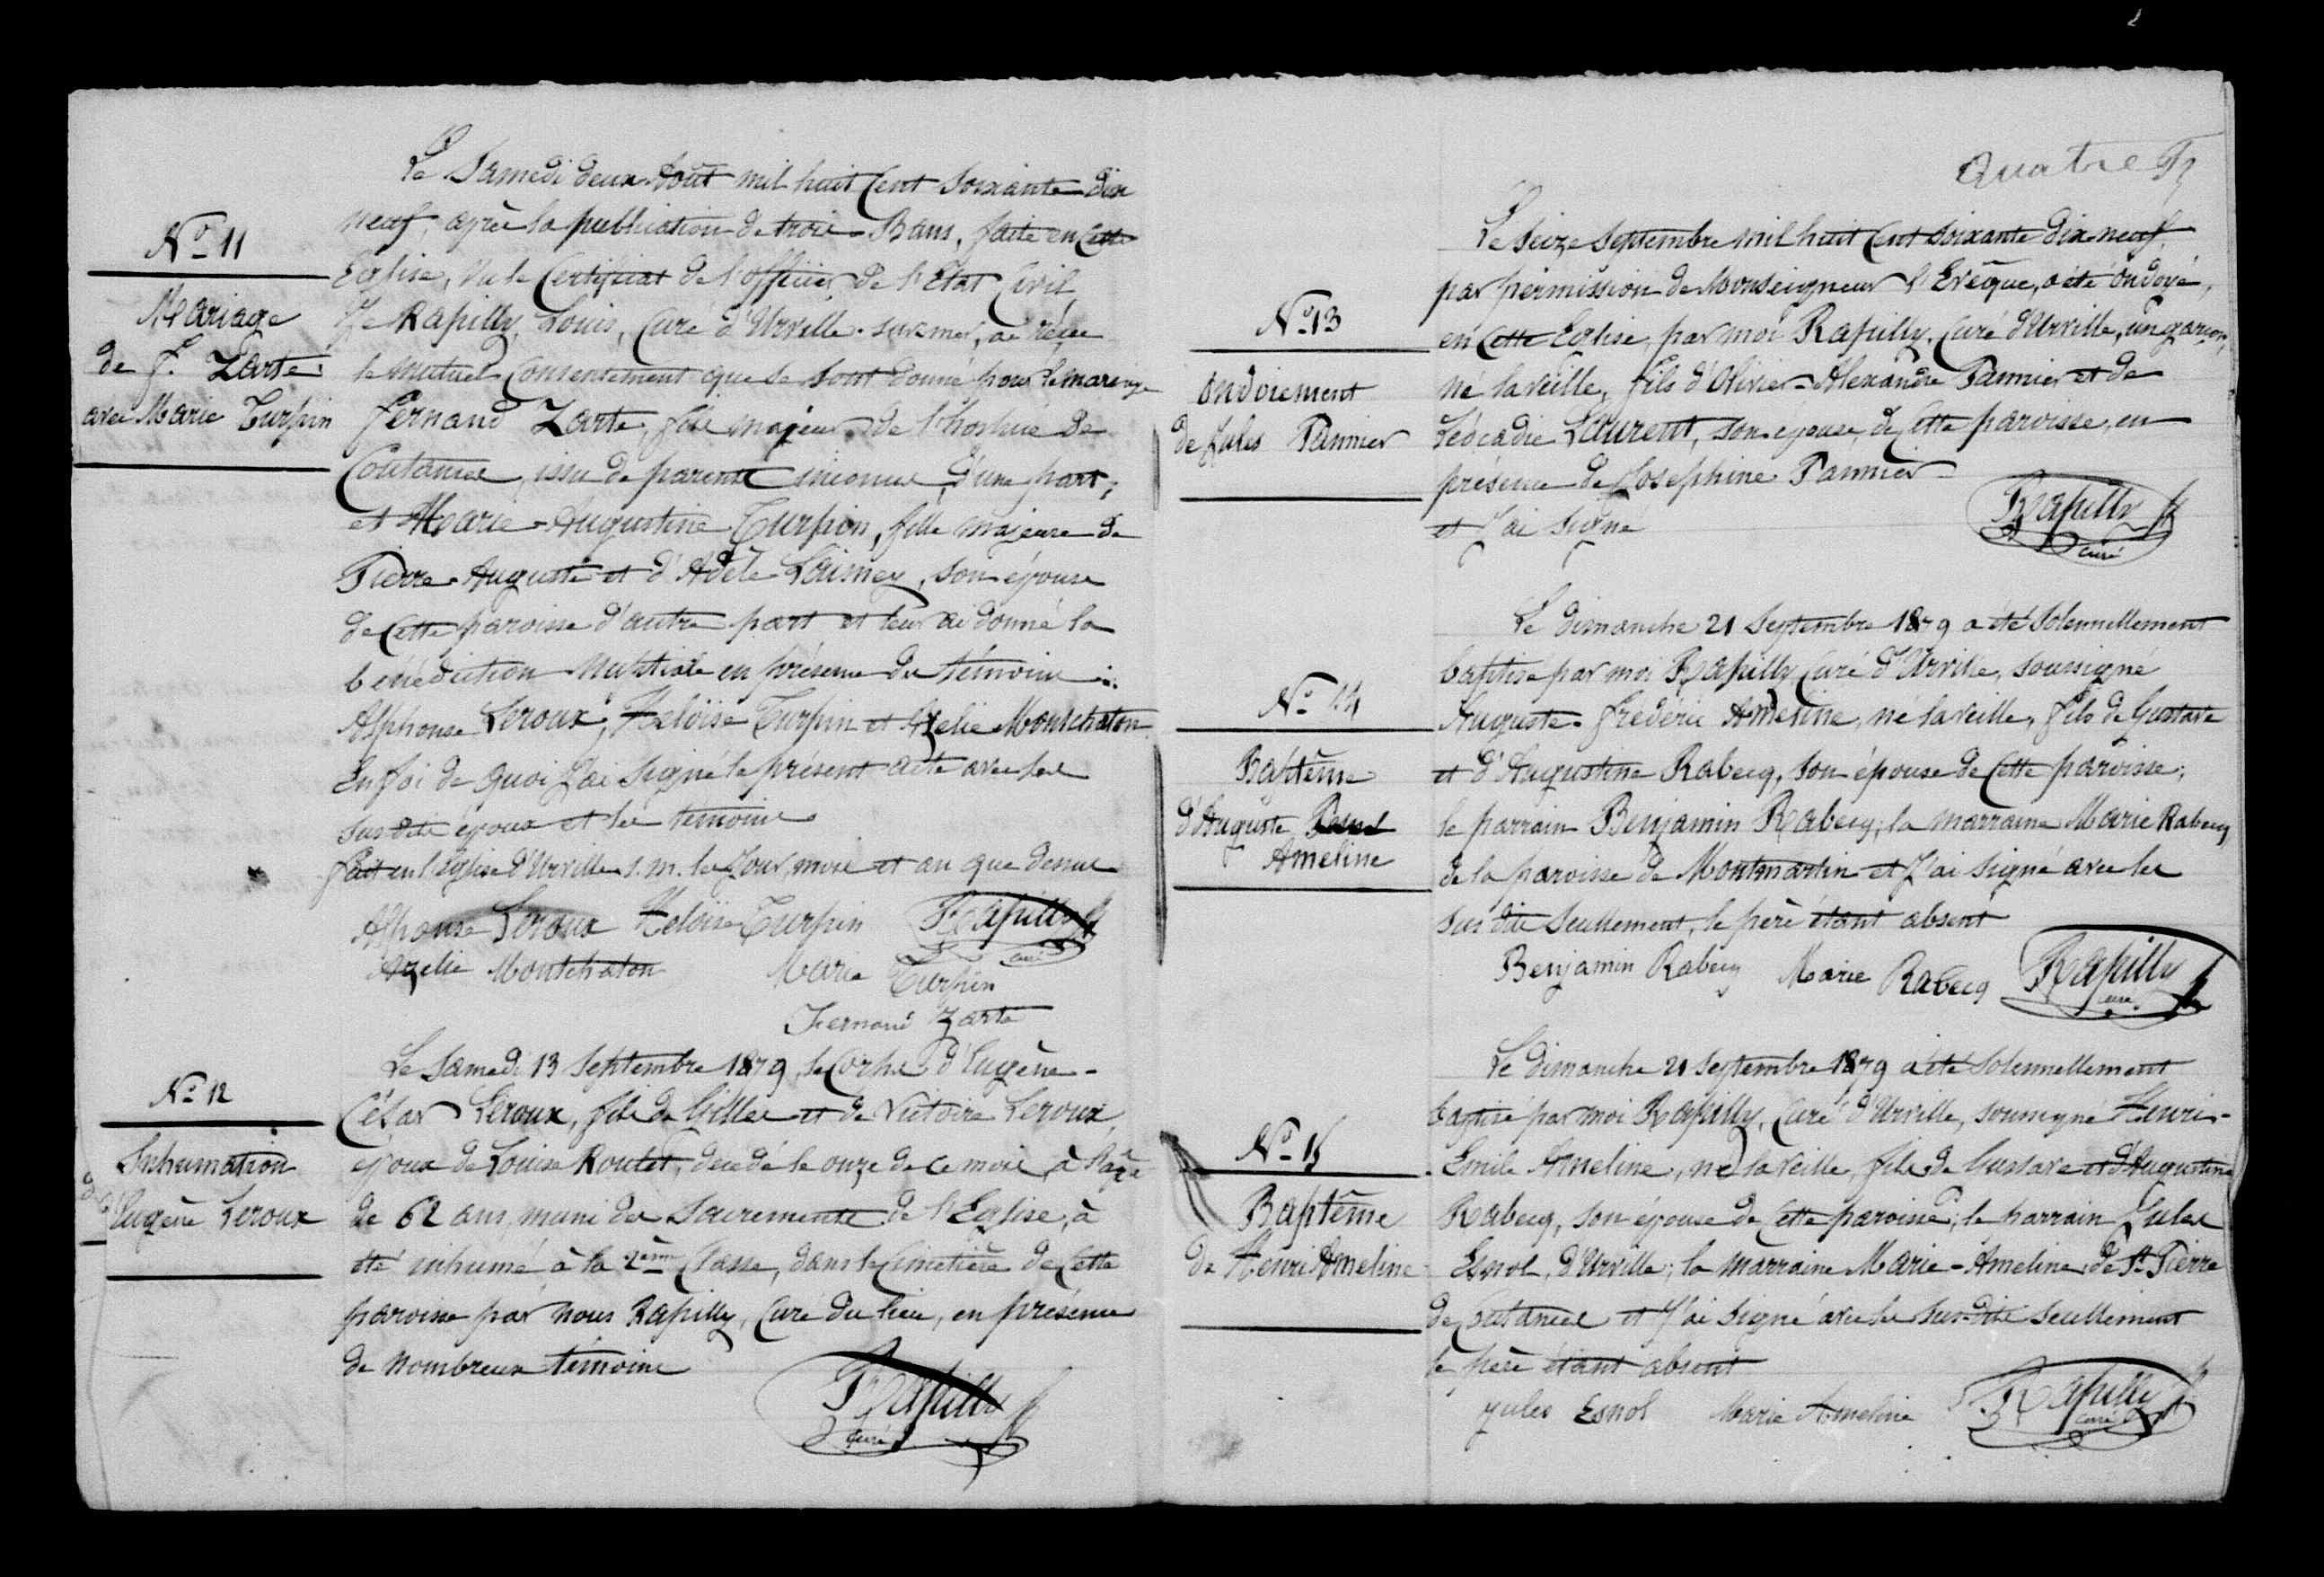 Le Samedi deux Août mil huit Cent soixante dix
neuf, après la publication de trois Bans, faite en cette
Eglise, vu le Certificat de l'officier de l'Etat Civil
Je Rapilly, Louis, Curé d'Urville-sur-mer, ai reçu
le mutuel Consentement que se sont donné pour le mariage
Fernand Zarte, fils majeur de l'hospice de
Coutances, issu de parents inconnus, d'une part,
et Marie-Augustine Turpin, fille majeure de
Pierre-Auguste et d'Adèle Laisney, son épouse
de Cette paroisse d'autre part et leur ai donné la
bénédiction nuptiale en présence des témoins :
Alphonse Leroux, Héloïse Turpin et Azélie Montchaton
En foi de quoi J'ai signé le présent acte avec les
sus dits époux et les témoins
fait en l'Eglise d'Urville s. m. les Jour, mois et an que dessus
Alphonse Leroux Héloïse Turpin Rapilly
curé
Azélie Montchaton Marie Turpin
Fernand Zarte
N° 11
Mariage
de F. Zarte
avec Marie Turpin
Le Samedi 13 Septembre 1879, le Corps d'Eugène-
César Leroux, fils de Gilles et de Victoire Leroux,
époux de Louise Routet, décédé le onze de ce mois, à l'âge
de 62 ans, muni des Sacrements de l'Eglise, à
été inhumé à la 2ème Classe, dans le Cimetière de Cette
paroisse par nous Rapilly, Curé du lieu, en présence
de nombreux témoins
Rapilly
Curé
N° 12
Inhumation
d'Eugène Leroux
Quatre
Le seize Septembre mil huit Cent soixante dix neuf,
par permission de Monseigneur l'Evêque, a été ondoyé,
en Cette Eglise, par moi Rapilly, Curé d'Urville, un garçon,
né la veille, fils d'Olivier-Alexandre Pannier et de
Léocadie Laurent, son épouse, de Cette paroisse, en
présence de Joséphine Pannier
et J'ai Signé
Rapilly
curé
N° 13
Ondoiement
de Jules Pannier
Le dimanche 21 Septembre 1879 a été Solennellement
baptisé par moi Rapilly Curé d'Urville, soussigné
Auguste-Frédéric Ameline, né la veille, fils de Gustave
et d'Augustine Rabecq, son épouse de Cette paroisse;
le parrain Benjamin Rabecq; la marraine Marie Rabecq
de la paroisse de Montmartin et J'ai signé avec les
sus dits Seullement, le père étant absent
Benjamin Rabecq Marie Rabecq Rapilly
curé
N° 14
Baptême
d'Auguste
Ameline
Le dimanche 21 Septembre 1879 a été Solennellement
baptisé par moi Rapilly, Curé d'Urville, soussigné Henri-
Emile Ameline, né la veille, fils de Gustave et d'Augustine
Rabecq, son épouse de Cette paroisse; le parrain Jules
Esnol, d'Urville; la marraine Marie-Ameline de St Pierre
de Coutances et J'ai signé avec les sus-dits seullement
le père étant absent
Jules Esnol Marie Ameline Rapilly
Curé
N° 15
Baptême
de Henri Ameline